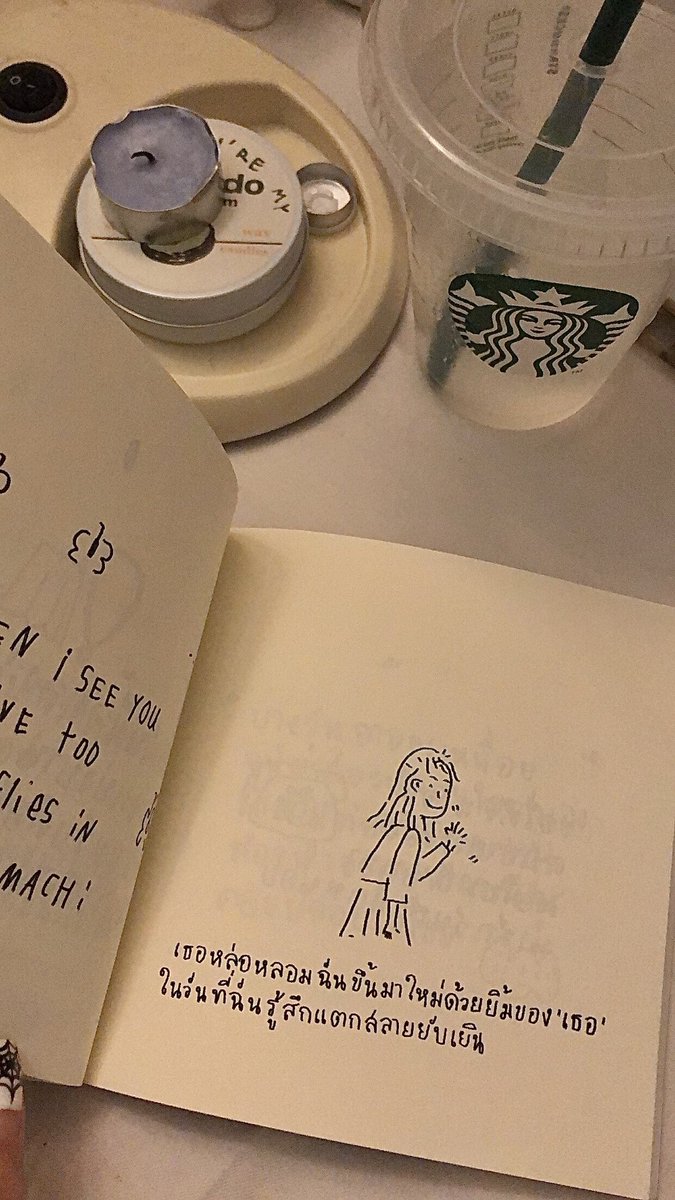 U'RE MY
do
m
wax
candles
STARBUCKS
EN i SEE YOU
VE TOO
Flies iN
MACH!
เธอหล่อหลอมฉันขึ้นมาใหม่ด้วยยิ้มของ 'เธอ'
ในวันที่ฉันรู้สึกแตกสลายยับเยิน